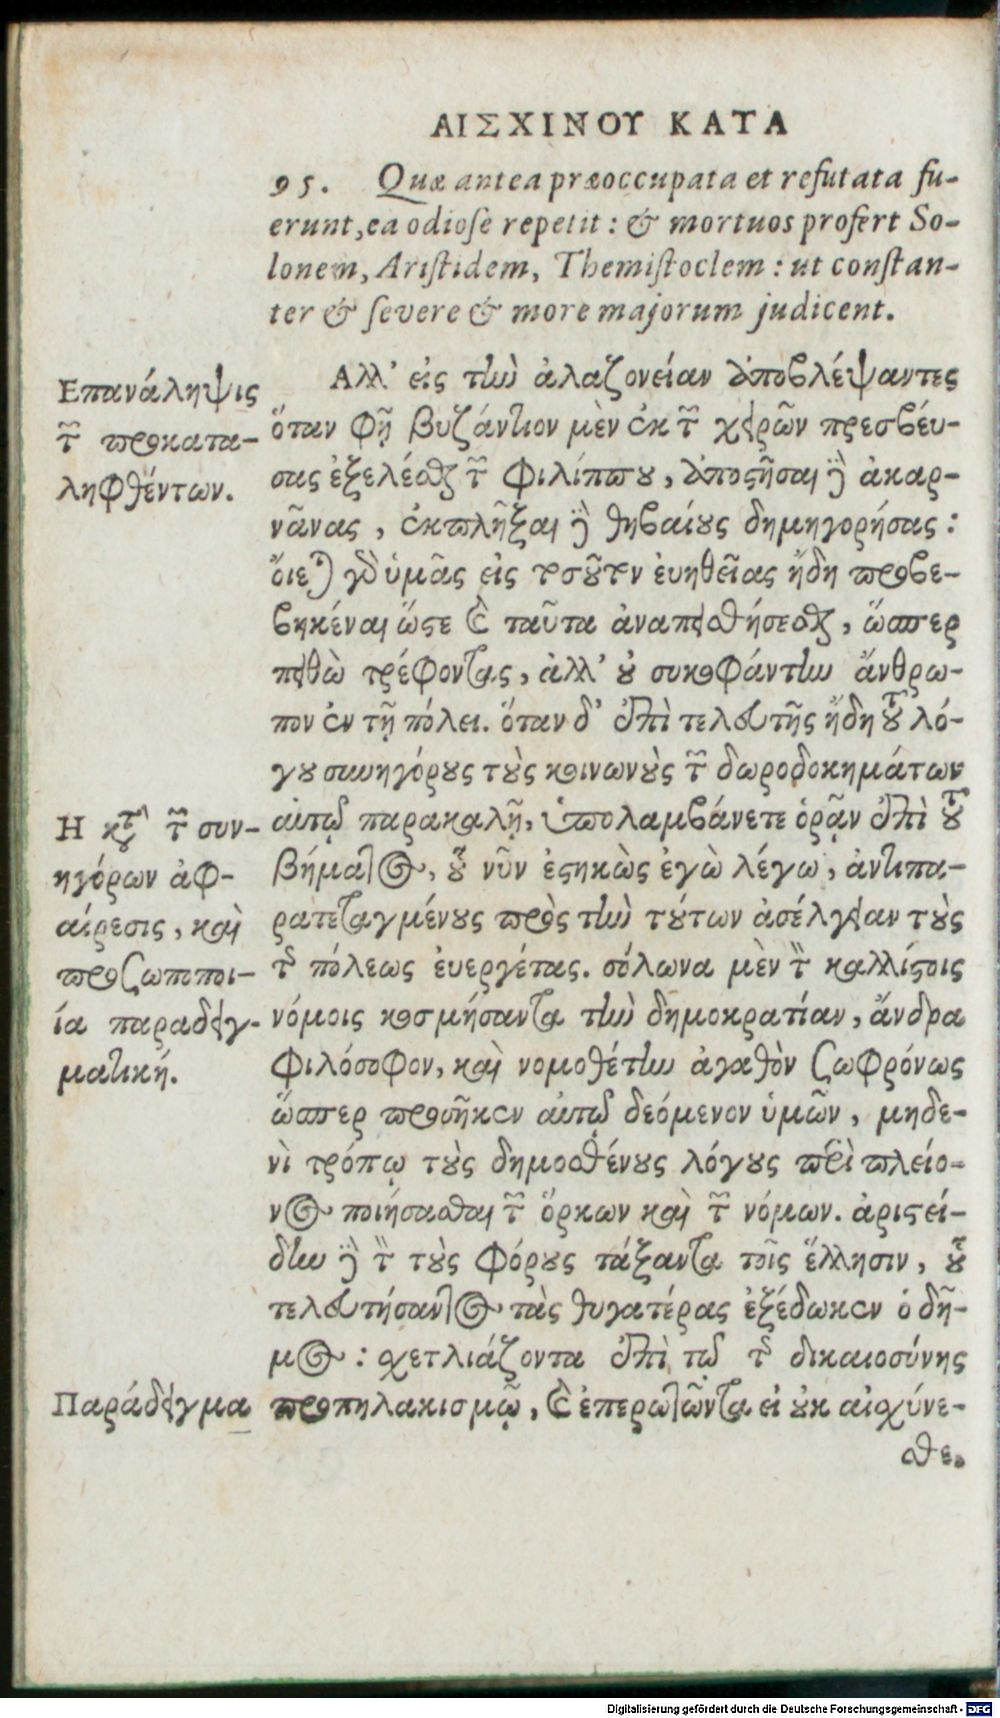 ΑΙΣΧΙΝΟΥ ΚΑΤΑ
95. Quæ antea præoccupata et refutata fu-
erunt, ea odiose repetit: & mortuos profert So-
lonem, Aristidem, Themistoclem: ut constan-
ter & severe & more majorum judicent.
Αλλ' εἰς τὴν ἀλαζονείαν ἀποβλέψαντες
ὅταν φῇ βυζάντιον μὲν ἐκ τῶν χειρῶν πρεσβεύ-
σας ἐξελέσθαι τῶν φιλίππου, ἀποστῆσαι δὲ ἀκαρ-
νᾶνας, ἐκπλῆξαι δὲ θηβαίους δημηγορήσας:
οἴεται γὰρ ὑμᾶς εἰς τοσοῦτον ἐυηθείας ἤδη προβε-
βηκέναι ὥστε καὶ ταῦτα ἀναπεισθήσεσθαι, ὥσπερ
πειθὼ τρέφοντας, ἀλλ' οὐ συκοφάντην ἄνθρω-
πον ἐν τῇ πόλει. ὅταν δ' ἐπὶ τελευτῆς ἤδη τοῦ λό-
γου συνηγόρους τοὺς κοινωνοὺς τῶν δωροδοκημάτων
αὐτῷ παρακαλῇ, ὑπολαμβάνετε ὁρᾷν ἐπὶ τοῦ
βήματος, οὗ νῦν ἑστηκὼς ἐγὼ λέγω, ἀντιπα-
ρατεταγμένους πρὸς τὴν τούτων ἀσέλγειαν τοὺς
τῆς πόλεως ἐυεργέτας. σόλωνα μὲν τὸν καλλίστοις
νόμοις κοσμήσαντα τὴν δημοκρατίαν, ἄνδρα
φιλόσοφον, καὶ νομοθέτην ἀγαθὸν σωφρόνως
ὥσπερ προσῆκεν αὐτῷ δεόμενον ὑμῶν, μηδε-
νὶ τρόπῳ τοὺς δημοσθένους λόγους περὶ πλείο-
νος ποιήσασθαι τῶν ὅρκων καὶ τῶν νόμων. ἀριστεί-
δην δὲ τὸν τοὺς φόρους τάξαντα τοῖς ἕλλησιν, οὗ
τελευτήσαντος τὰς θυγατέρας ἐξέδωκεν ὁ δῆ-
μος: σχετλιάζοντα ἐπὶ τῷ τῆς δικαιοσύνης
προπηλακισμῷ, καὶ ἐπερωτῶντα εἰ οὐκ αἰσχύνε-
σθε.
Επανάληψις
τῶν προκατα-
ληφθέντων.
Η κατὰ τῶν συν-
ηγόρων ἀφ-
αίρεσις, καὶ
προσωποποι-
ία παραδειγ-
ματική.
Παράδειγμα
Digitalisierung gefördert durch die Deutsche Forschungsgemeinschaft - DFG